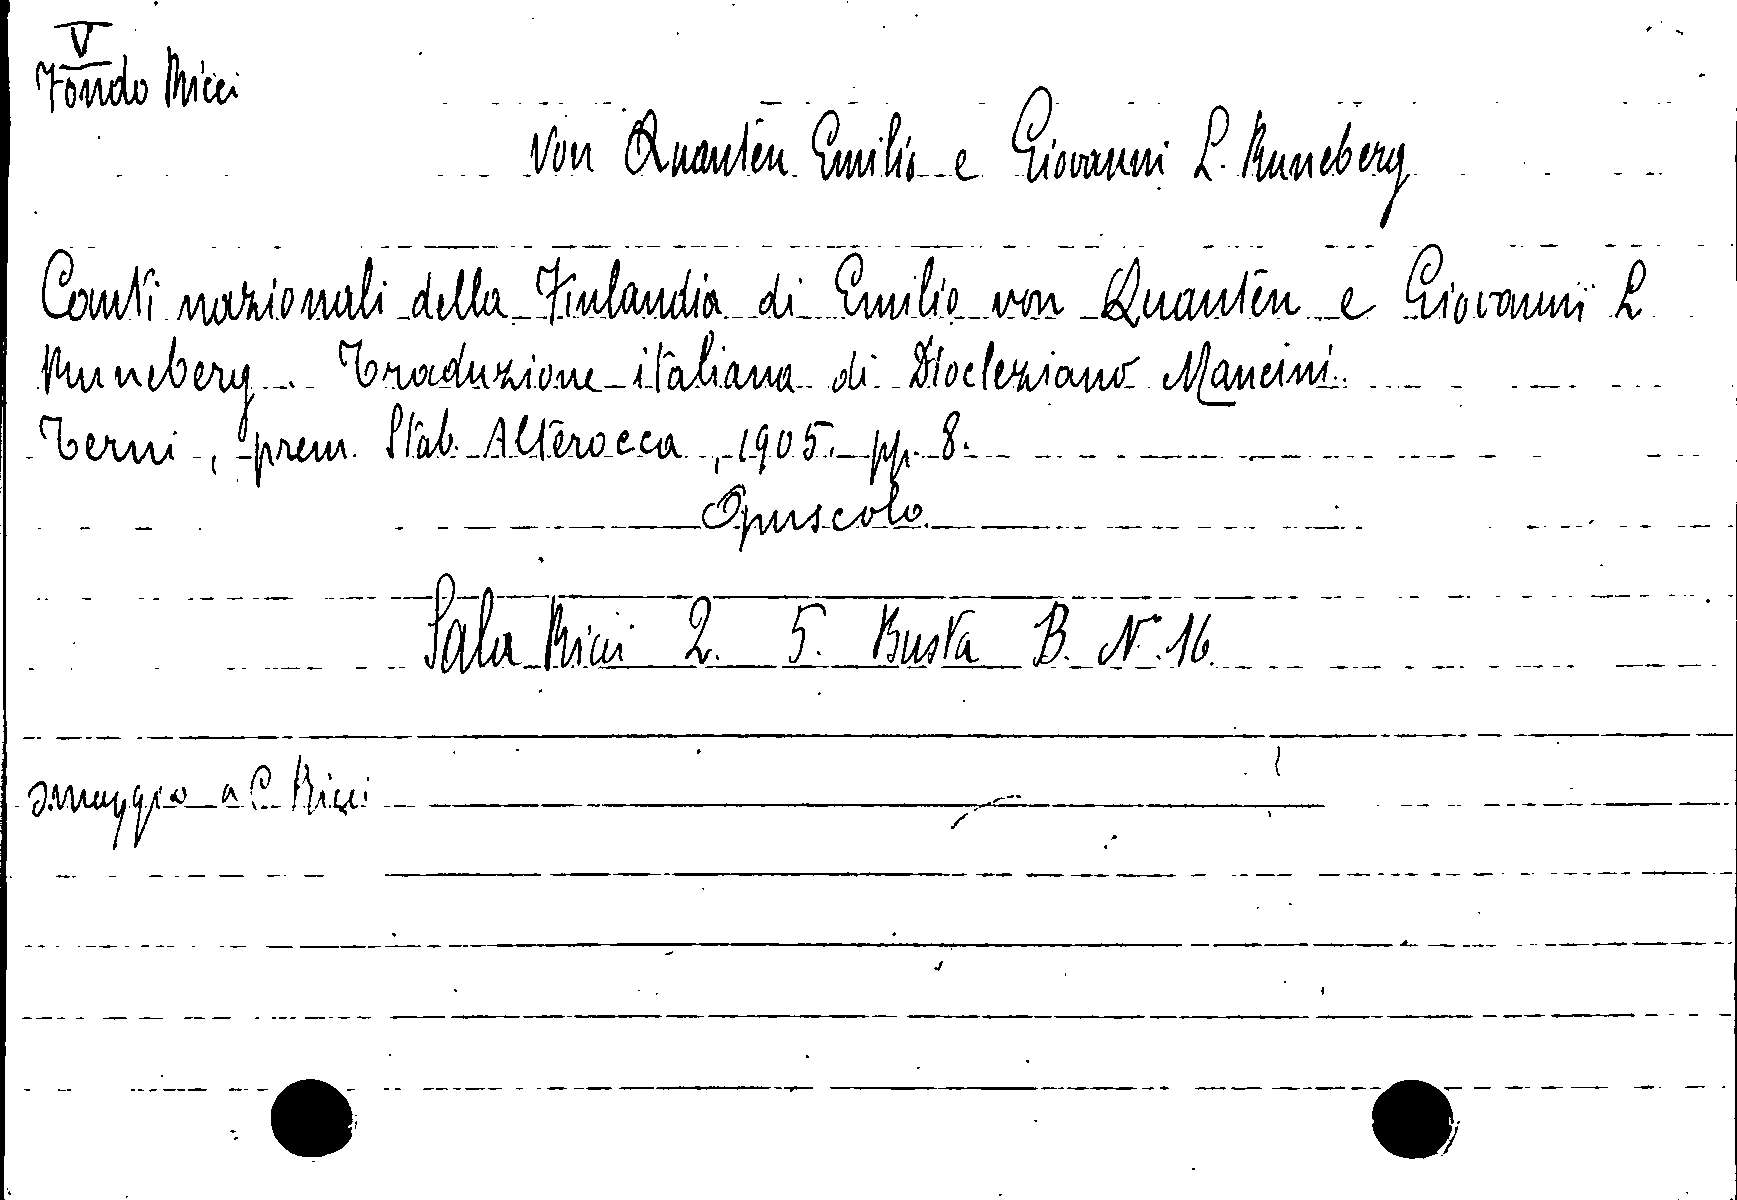 V
Fondo Ricci
Von Quantèn Emilio e Giovanni L. Runeberg
Canti nazionali della Finlandia di Emilio von Quantèn e Giovanni L
Runeberg. Traduzione italiana di Diocleziano Mancini.
Terni, prem. Stab. Alterocca, 1905. pp. 8.
Opuscolo
Sala Ricci 2. 5. Busta B. N. 16.
omaggio a C. Ricci